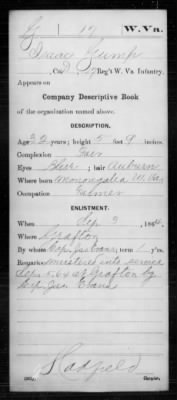 G | 17 | W. Va.
Isaac Gump
, Co. D, 17 Reg't W. Va. Infantry.
Appears on
Company Descriptive Book
of the organization named above.
DESCRIPTION.
Age 32 years; height 5 feet 9 inches.
Complexion Fair
Eyes Blue; hair Auburn
Where born Monongalia W. Va.
Occupation Farmer
ENLISTMENT.
When Sep 2, 1864.
Where Grafton
By whom Cap. Jas Evans; term 1 y'rs.
Remarks: Mustered into service
Sep 5.64 at Grafton by
Cap. Jas Evans
Hadfield
Copyist.